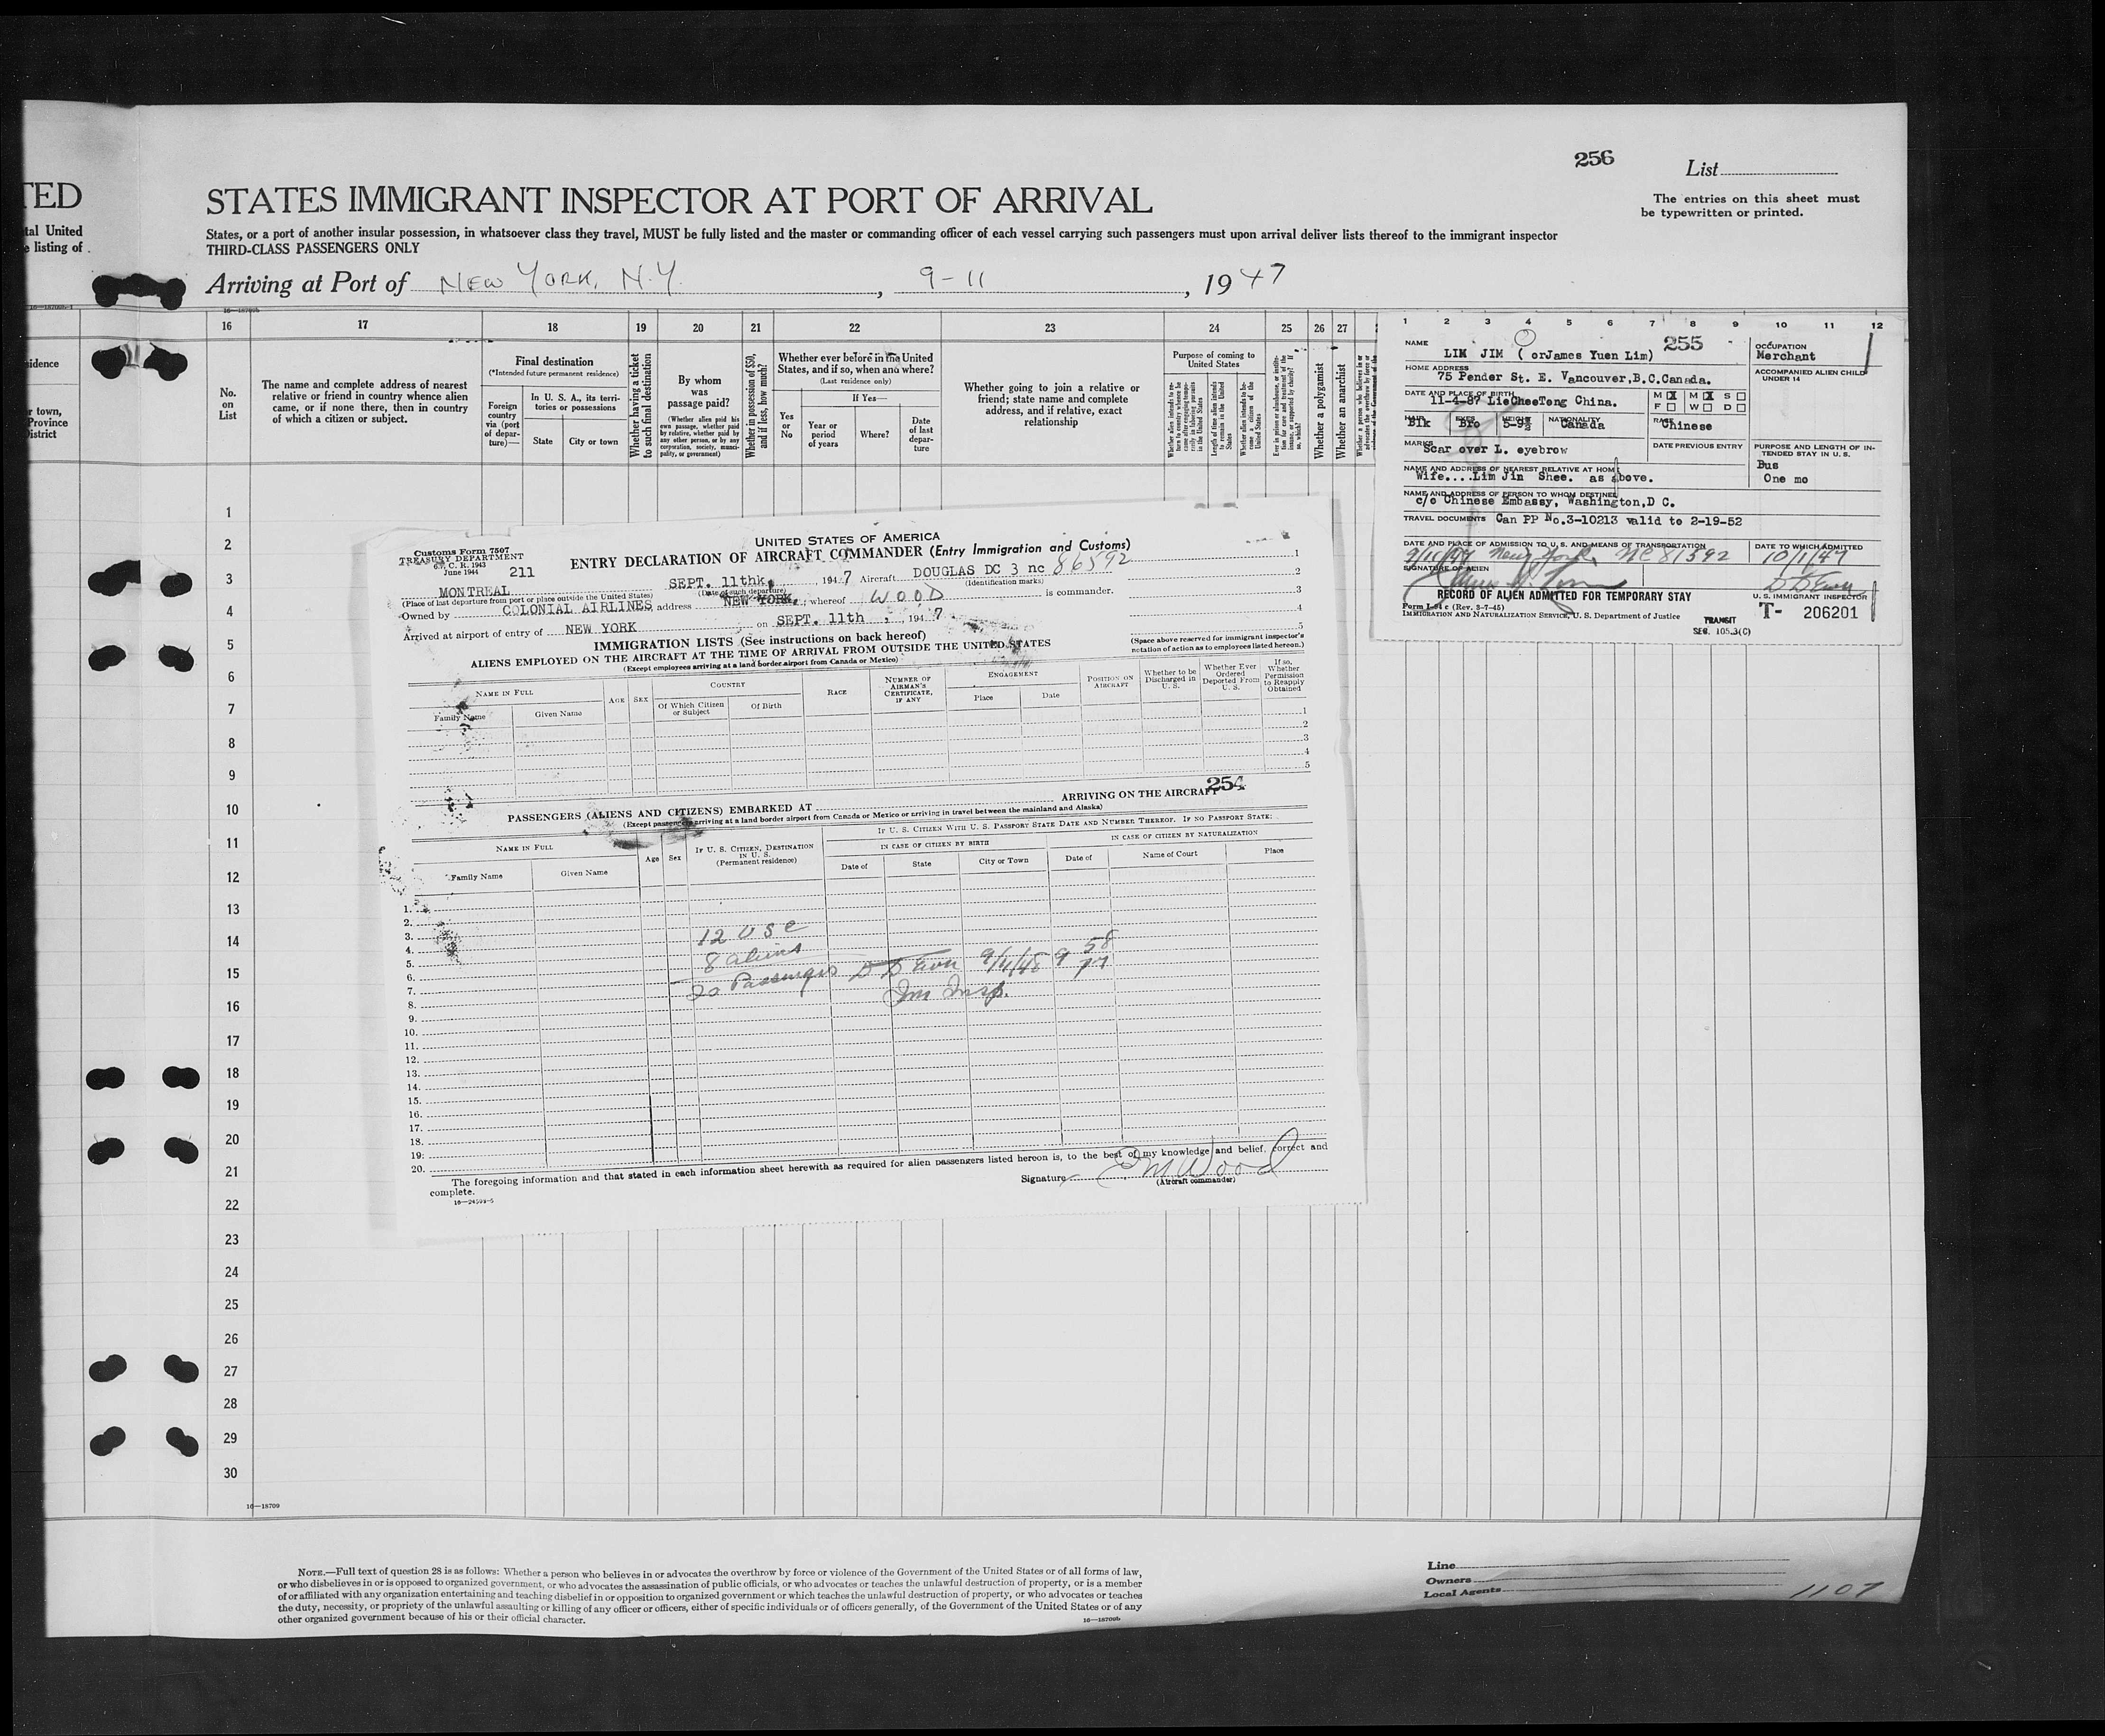 256
List
TED
STATES IMMIGRANT INSPECTOR AT PORT OF ARRIVAL
The entries on this sheet must
be typewritten or printed.
tal United
e listing of
States, or a port of another insular possession, in whatsoever class they travel, MUST be fully listed and the master or commanding officer of each vessel carrying such passengers must upon arrival deliver lists thereof to the immigrant inspector
THIRD-CLASS PASSENGERS ONLY
Arriving at Port of NEW YORK, N.Y. , 9-11 , 1947
16 17 18 19 20 21 22 23 24 25 26 27
sidence
r town,
Province
District
No.
on
List
The name and complete address of nearest
relative or friend in country whence alien
came, or if none there, then in country
of which a citizen or subject.
Final destination
(*Intended future permanent residence)
Foreign
country
via (port
of depar-
ture)—
In U. S. A., its terri-
tories or possessions
State City or town
Whether having a ticket
to such final destination
By whom
was
passage paid?
(Whether alien paid his
own passage, whether paid
by relative, whether paid by
any other person, or by any
corporation, society, munici-
pality, or government)
Whether in possession of $50,
and if less, how much?
Whether ever before in the United
States, and if so, when and where?
(Last residence only)
If Yes—
Yes
or
No
Year or
period
of years
Where?
Date
of last
depar-
ture
Whether going to join a relative or
friend; state name and complete
address, and if relative, exact
relationship
Purpose of coming to
United States
Whether a polygamist
Whether an anarchist
1 2 3 4 5 6 7 8 9 10 11 12
NAME
LIM JIM ( orJames Yuen Lim)
255
OCCUPATION
Merchant
HOME ADDRESS
75 Pender St. E. Vancouver,B.C.Canada.
ACCOMPANIED ALIEN CHILD
UNDER 14
DATE AND PLACE OF BIRTH
11-4-87 LieCheeTong China.
M X M X S
F W D
HAIR EYES HEIGHT NATIONALITY RACE
Blk Bro 5-9½ Canada Chinese
MARKS
Scar over L. eyebrow
DATE PREVIOUS ENTRY
PURPOSE AND LENGTH OF IN-
TENDED STAY IN U. S.
Bus
One mo
NAME AND ADDRESS OF NEAREST RELATIVE AT HOME
Wife....Lim Jin Shee. as above.
NAME AND ADDRESS OF PERSON TO WHOM DESTINED
c/o Chinese Embassy, Washington,D C.
TRAVEL DOCUMENTS Can PP No.3-10213 valid to 2-19-52
DATE AND PLACE OF ADMISSION TO U. S. AND MEANS OF TRANSPORTATION
9/11/47 New York NC 81592
DATE TO WHICH ADMITTED
10/1/47
SIGNATURE OF ALIEN
RECORD OF ALIEN ADMITTED FOR TEMPORARY STAY
U. S. IMMIGRANT INSPECTOR
Form I-94 c (Rev. 3-7-45)
IMMIGRATION AND NATURALIZATION SERVICE, U. S. Department of Justice
T- 206201
TRANSIT
SEC. 105.3(C)
Customs Form 7507
TREASURY DEPARTMENT
6.7, C. R. 1943
June 1944
211
UNITED STATES OF AMERICA
ENTRY DECLARATION OF AIRCRAFT COMMANDER (Entry Immigration and Customs)
MONTREAL SEPT. 11thk, , 1947 Aircraft DOUGLAS DC 3 nc 86592
(Place of last departure from port or place outside the United States) (Date of such departure) (Identification marks)
Owned by COLONIAL AIRLINES address NEW YORK, ; whereof WOOD is commander.
Arrived at airport of entry of NEW YORK on SEPT. 11th , 1947.
1
2
3
4
5
(Space above reserved for immigrant inspector's
notation of action as to employees listed hereon.)
IMMIGRATION LISTS (See instructions on back hereof)
ALIENS EMPLOYED ON THE AIRCRAFT AT THE TIME OF ARRIVAL FROM OUTSIDE THE UNITED STATES
(Except employees arriving at a land border airport from Canada or Mexico)
NAME IN FULL
Family Name Given Name
AGE SEX
COUNTRY
Of Which Citizen
or Subject
Of Birth
RACE
NUMBER OF
AIRMAN'S
CERTIFICATE,
IF ANY
ENGAGEMENT
Place Date
POSITION ON
AIRCRAFT
Whether to be
Discharged in
U. S.
Whether Ever
Ordered
Deported From
U. S.
If so,
Whether
Permission
to Reapply
Obtained
1
2
3
4
5
254
PASSENGERS (ALIENS AND CITIZENS) EMBARKED AT ARRIVING ON THE AIRCRAFT
(Except passengers arriving at a land border airport from Canada or Mexico or arriving in travel between the mainland and Alaska)
NAME IN FULL
Family Name Given Name
Age Sex
IF U. S. CITIZEN, DESTINATION
IN U. S.
(Permanent residence)
IF U. S. CITIZEN WITH U. S. PASSPORT STATE DATE AND NUMBER THEREOF. IF NO PASSPORT STATE:
IN CASE OF CITIZEN BY BIRTH
IN CASE OF CITIZEN BY NATURALIZATION
Date of State City or Town Date of Name of Court Place
1.
2.
3. 12 USC
4.
5. 8 aliens
6.
7. 20 Passengers
8. Im Insp.
9.
10.
11.
12.
13.
14.
15.
16.
17.
18.
19.
20.
The foregoing information and that stated in each information sheet herewith as required for alien passengers listed hereon is, to the best of my knowledge and belief, correct and
complete.
Signature Wood
(Aircraft commander)
16—24599-5
1
2
3
4
5
6
7
8
9
10
11
12
13
14
15
16
17
18
19
20
21
22
23
24
25
26
27
28
29
30
16—18709
NOTE.—Full text of question 28 is as follows: Whether a person who believes in or advocates the overthrow by force or violence of the Government of the United States or of all forms of law,
or who disbelieves in or is opposed to organized government, or who advocates the assassination of public officials, or who advocates or teaches the unlawful destruction of property, or is a member
of or affiliated with any organization entertaining and teaching disbelief in or opposition to organized government or which teaches the unlawful destruction of property, or who advocates or teaches
the duty, necessity, or propriety of the unlawful assaulting or killing of any officer or officers, either of specific individuals or of officers generally, of the Government of the United States or of any
other organized government because of his or their official character.
16—18709b
Line
Owners
Local Agents
1107